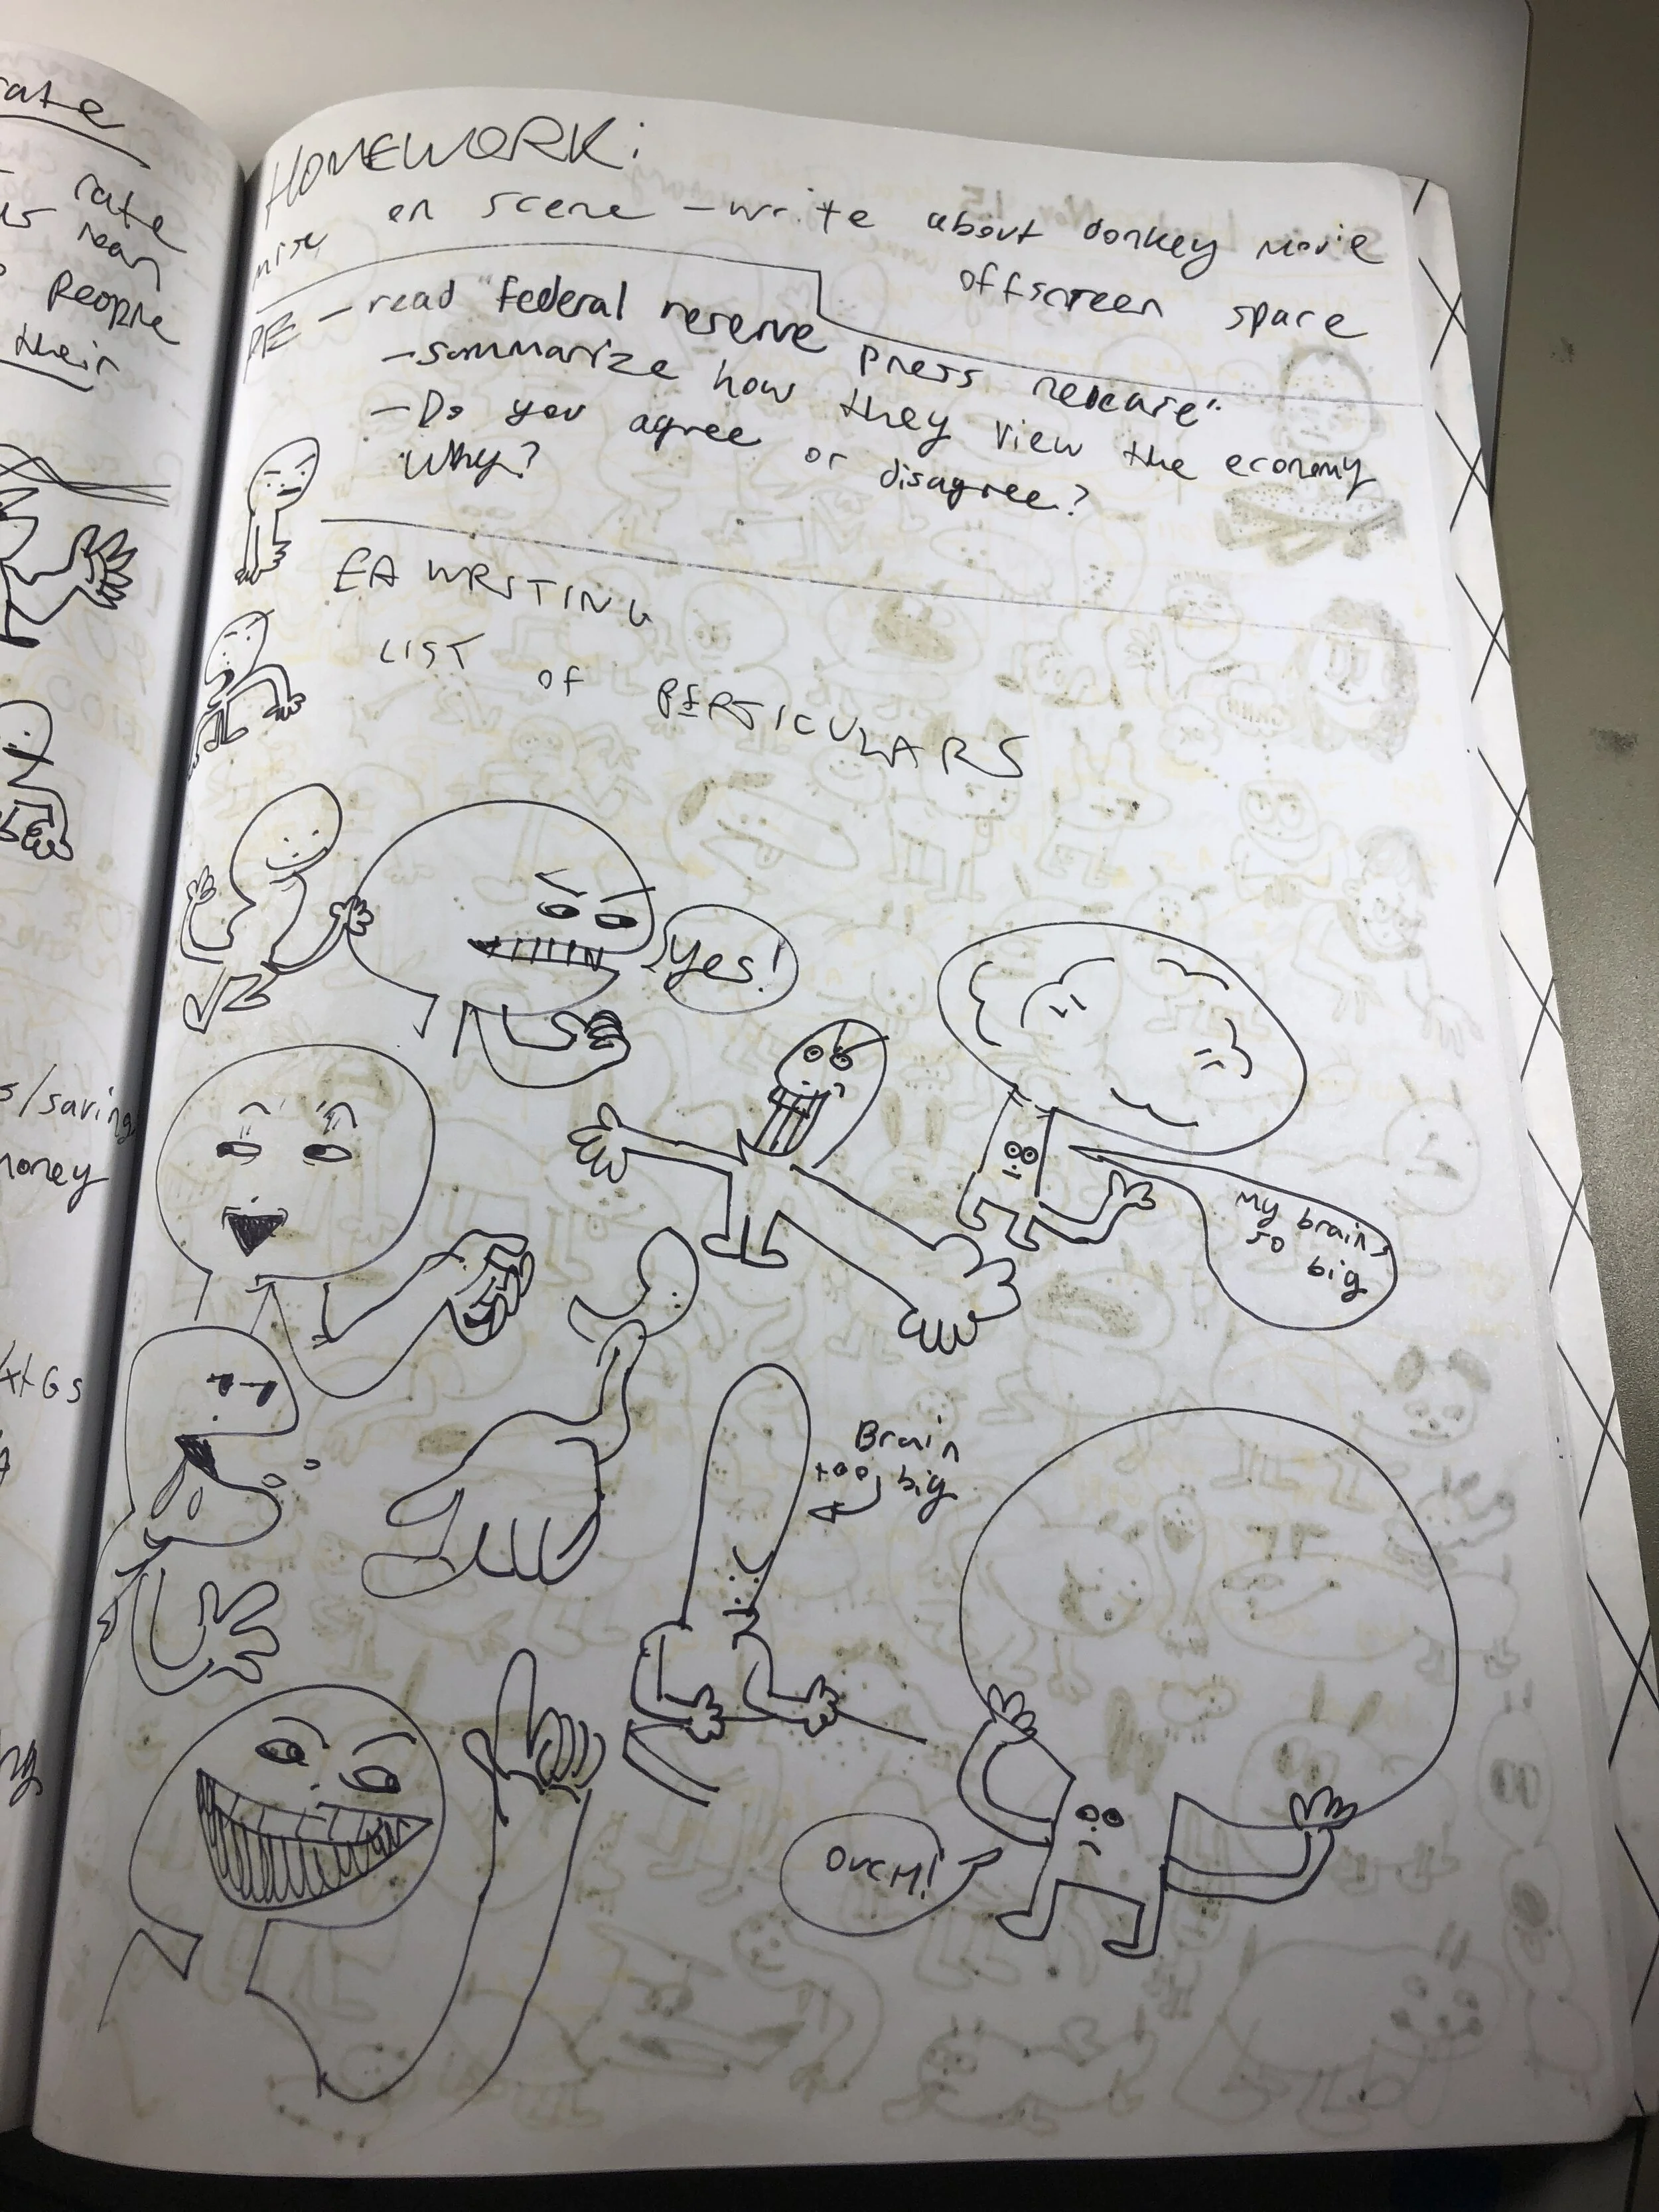 rate
rate
real
People
their
s/saving
money
HOMEWORK:
mise en scene - write about donkey movie
offscreen space
PE - read "Federal reserve press release"
- summarize how they view the economy
- Do you agree or disagree?
Why?
EA WRITING
LIST of PERTICULARS
Yes!
My brain
so
big
Brain
too big
OUCH!